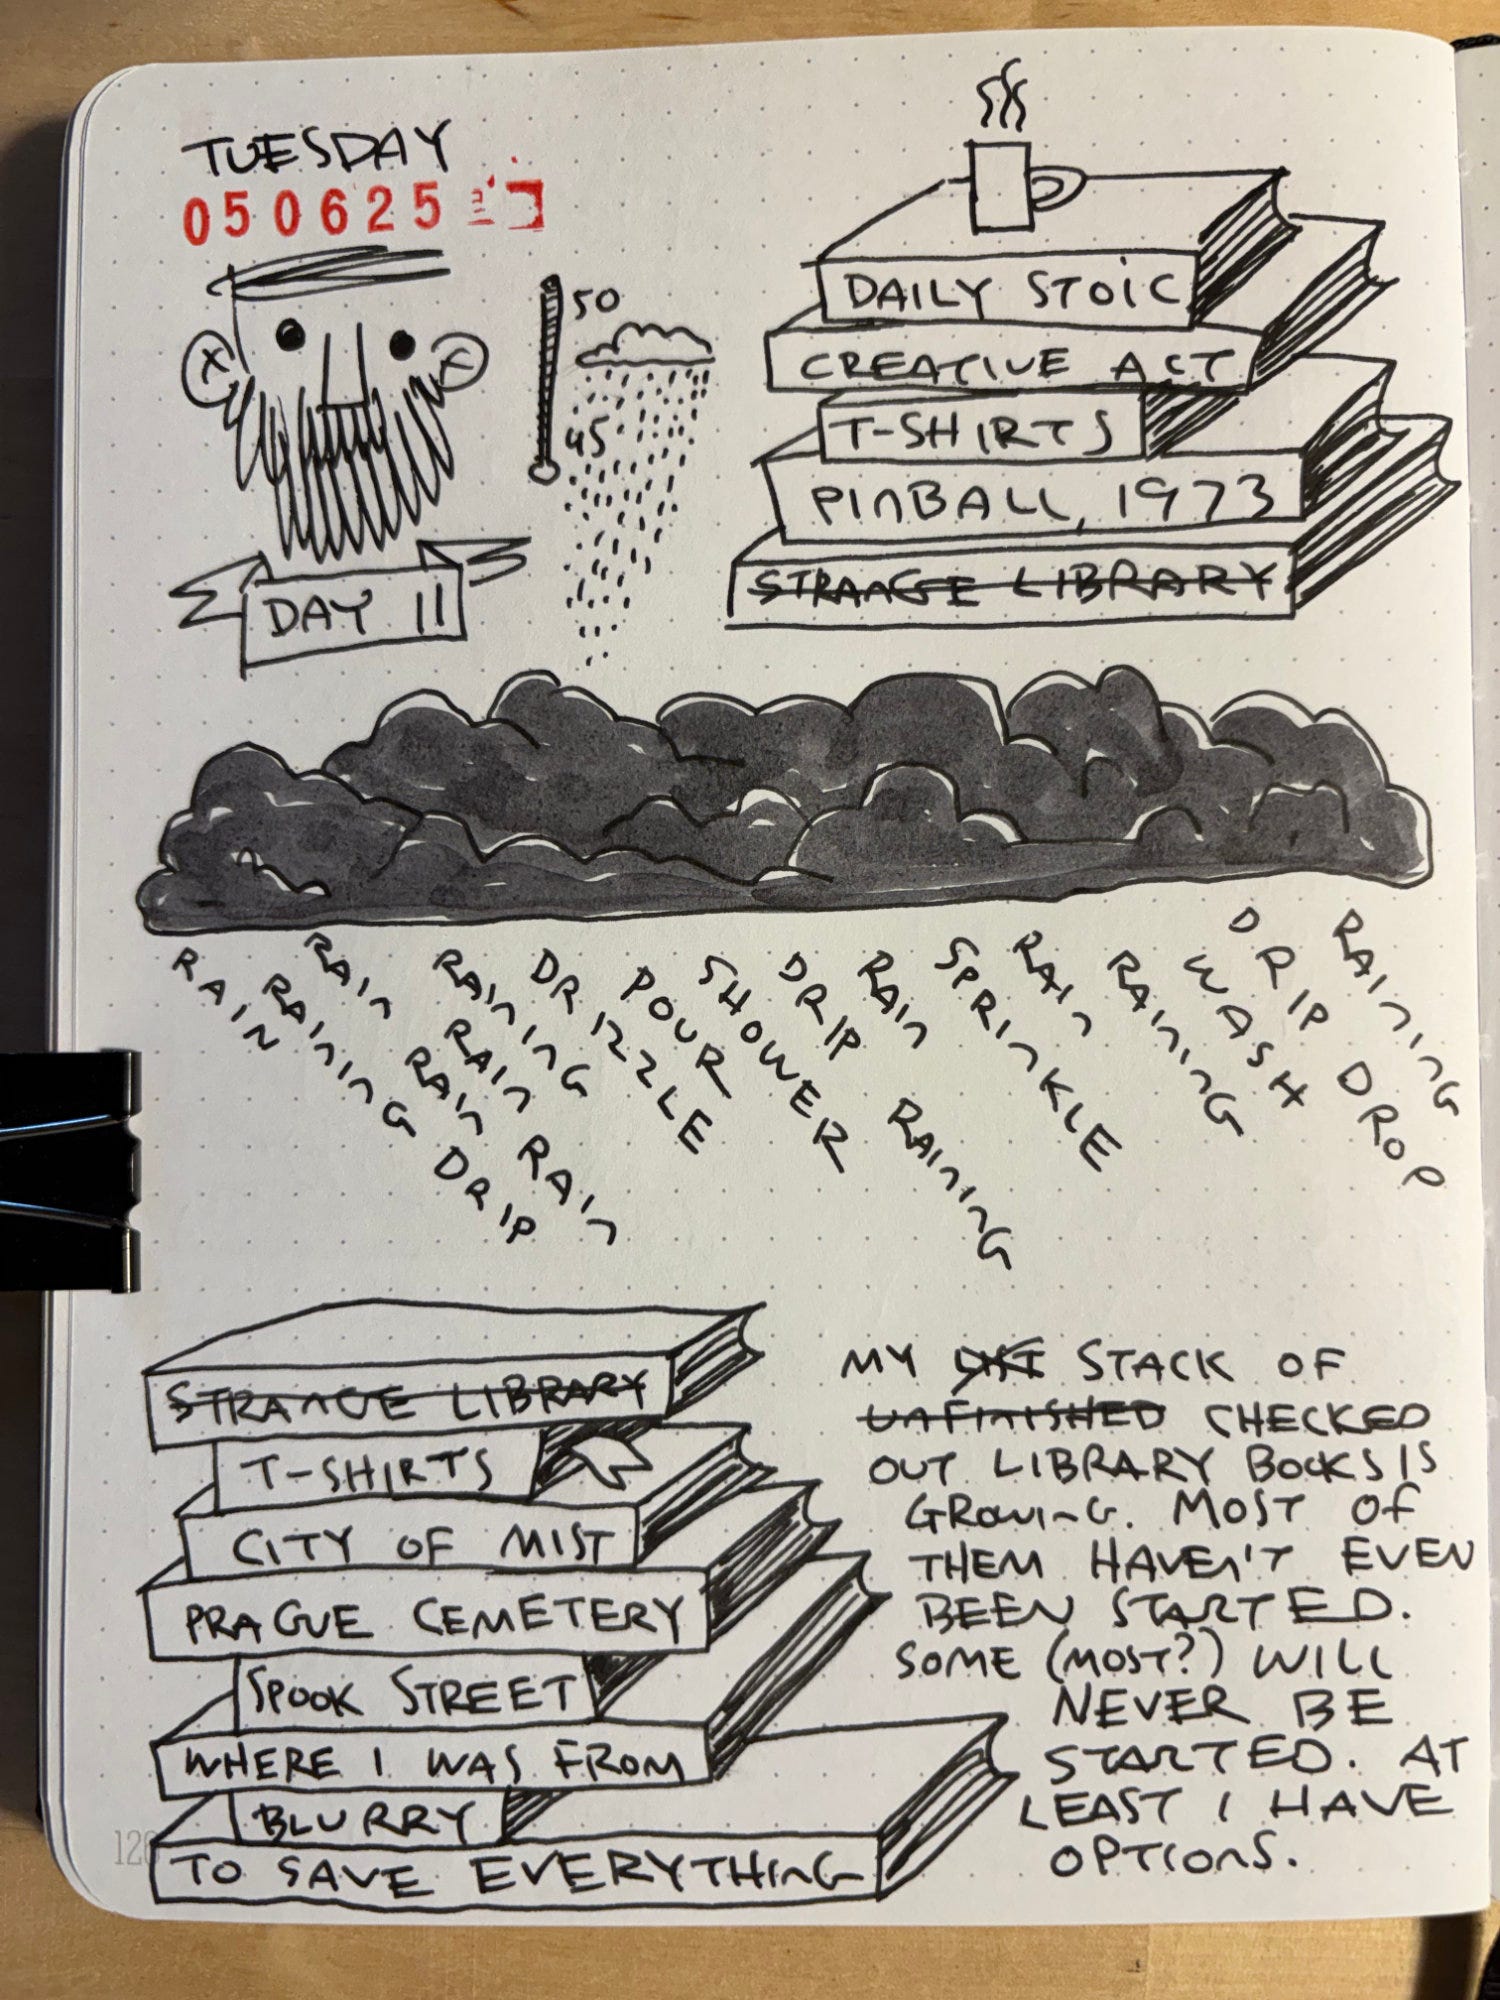 TUESDAY
050625
50
45
DAY 11
DAILY STOIC
CREATIVE ACT
T-SHIRTS
PINBALL, 1973
STRANGE LIBRARY
RAIN
RAINING DRIP
RAIN RAIN RAIN
RAINING
RAIN
DRIZZLE
POUR
SHOWER
DRIP
RAIN RAINING
SPRINKLE
RAIN
RAINING
WASH
DRIP DROP
RAINING
STRANGE LIBRARY
T-SHIRTS
CITY OF MIST
PRAGUE CEMETERY
SPOOK STREET
WHERE I WAS FROM
BLURRY
TO SAVE EVERYTHING
MY LIST STACK OF
UNFINISHED CHECKED
OUT LIBRARY BOOKS IS
GROWING. MOST OF
THEM HAVEN'T EVEN
BEEN STARTED.
SOME (MOST?) WILL
NEVER BE
STARTED. AT
LEAST I HAVE
OPTIONS.